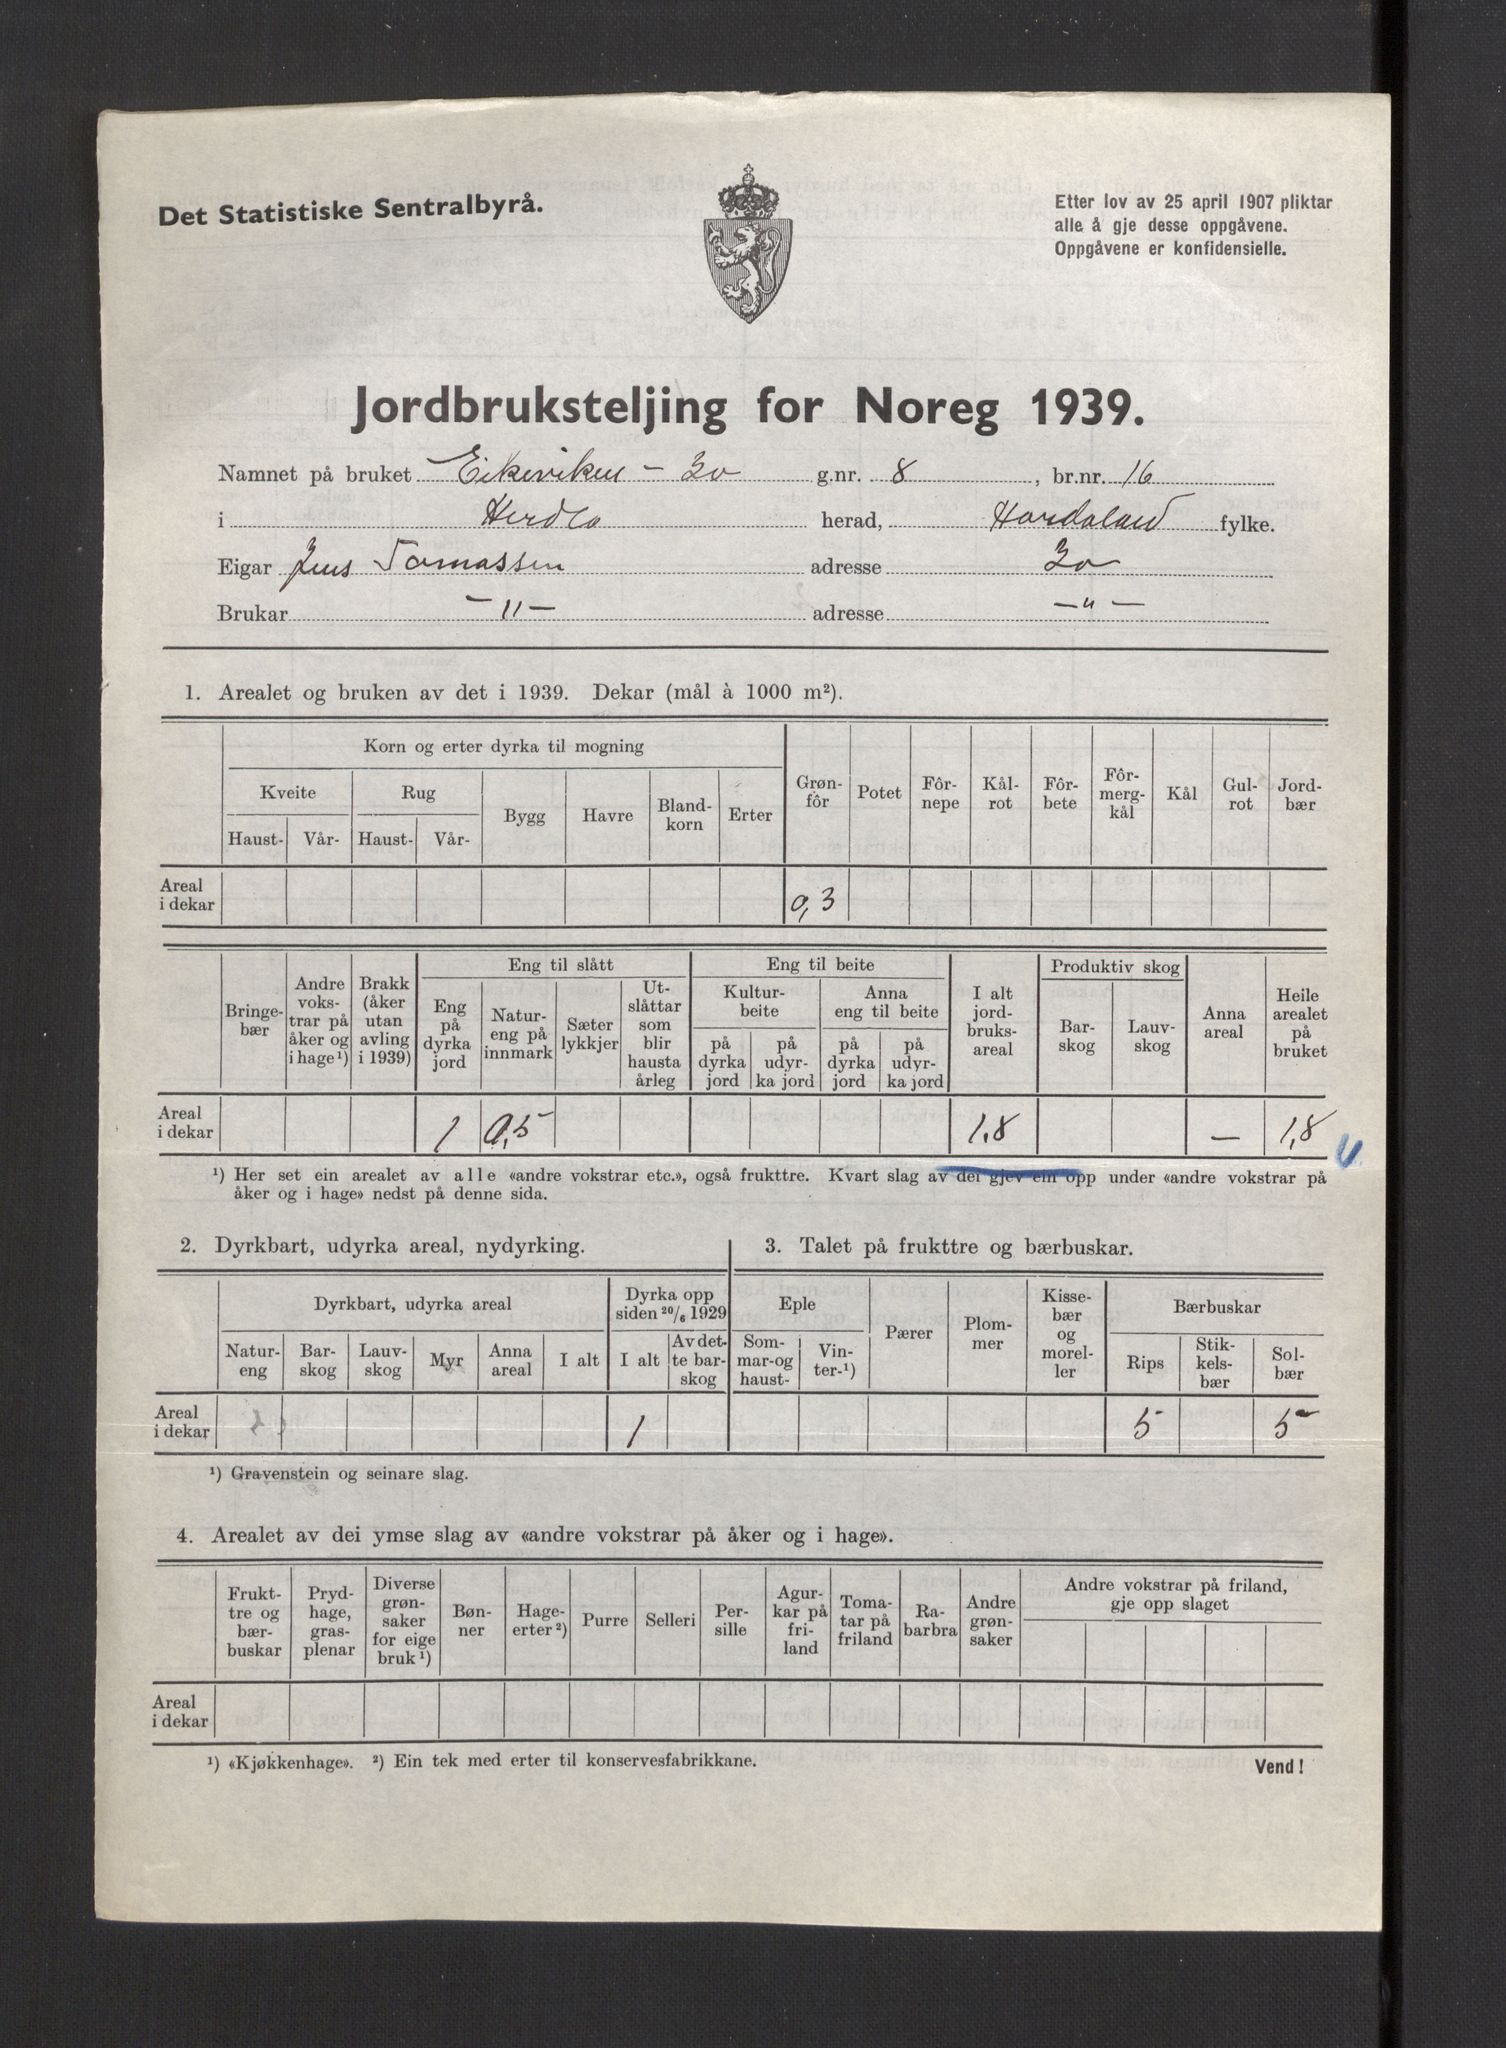 Det Statistiske Sentralbyrå.
Etter lov av 25 april 1907 pliktar
alle å gje desse oppgåvene.
Oppgåvene er konfidensielle.
Jordbruksteljing for Noreg 1939.
Namnet på bruket Eikeviken - 30 g.nr. 8, br.nr. 16
i Herdla herad, Hordaland fylke.
Eigar Jens Tomassen adresse 30
Brukar -"- adresse -"-
1. Arealet og bruken av det i 1939. Dekar (mål à 1000 m²).
Korn og erter dyrka til mogning
Kveite Rug Bygg Havre Bland-korn Erter Grøn-fôr Potet Fôr-nepe Kål-rot Fôr-bete Fôr-mergkål Kål Gul-rot Jord-bær
Haust- Vår- Haust- Vår-
Areal i dekar 0,3
Bringe-bær Andre vokstrar på åker og i hage¹) Brakk (åker utan avling i 1939) Eng til slått Eng til beite I alt jordbruks-areal Produktiv skog Anna areal Heile arealet på bruket
Eng på dyrka jord Natureng på innmark Sæter lykkjer Utslåttar som blir hausta årleg Kultur-beite Anna eng til beite Bar-skog Lauv-skog
på dyrka jord på udyrka jord på dyrka jord på udyrka jord
Areal i dekar 1 0,5 1,8 — 1,8
¹) Her set ein arealet av alle «andre vokstrar etc.», også frukttre. Kvart slag av dei gjev ein opp under «andre vokstrar på
åker og i hage» nedst på denne sida.
2. Dyrkbart, udyrka areal, nydyrking.
Dyrkbart, udyrka areal Dyrka opp siden ²⁰/₆ 1929
Natur-eng Bar-skog Lauv-skog Myr Anna areal I alt I alt Av dette barskog
Areal i dekar 1
¹) Gravenstein og seinare slag.
3. Talet på frukttre og bærbuskar.
Eple Pærer Plommer Kissebær og moreller Bærbuskar
Sommar-og haust- Vinter-¹) Rips Stikkelsbær Solbær
5 5
4. Arealet av dei ymse slag av «andre vokstrar på åker og i hage».
Frukttre og bærbuskar Prydhage, grasplenar Diverse grønsaker for eige bruk¹) Bønner Hageerter²) Purre Selleri Persille Agurkar på friland Tomatar på friland Rabarbra Andre grønsaker Andre vokstrar på friland, gje opp slaget
Areal i dekar
¹) «Kjøkkenhage». ²) Ein tek med erter til konservesfabrikkane.
Vend!